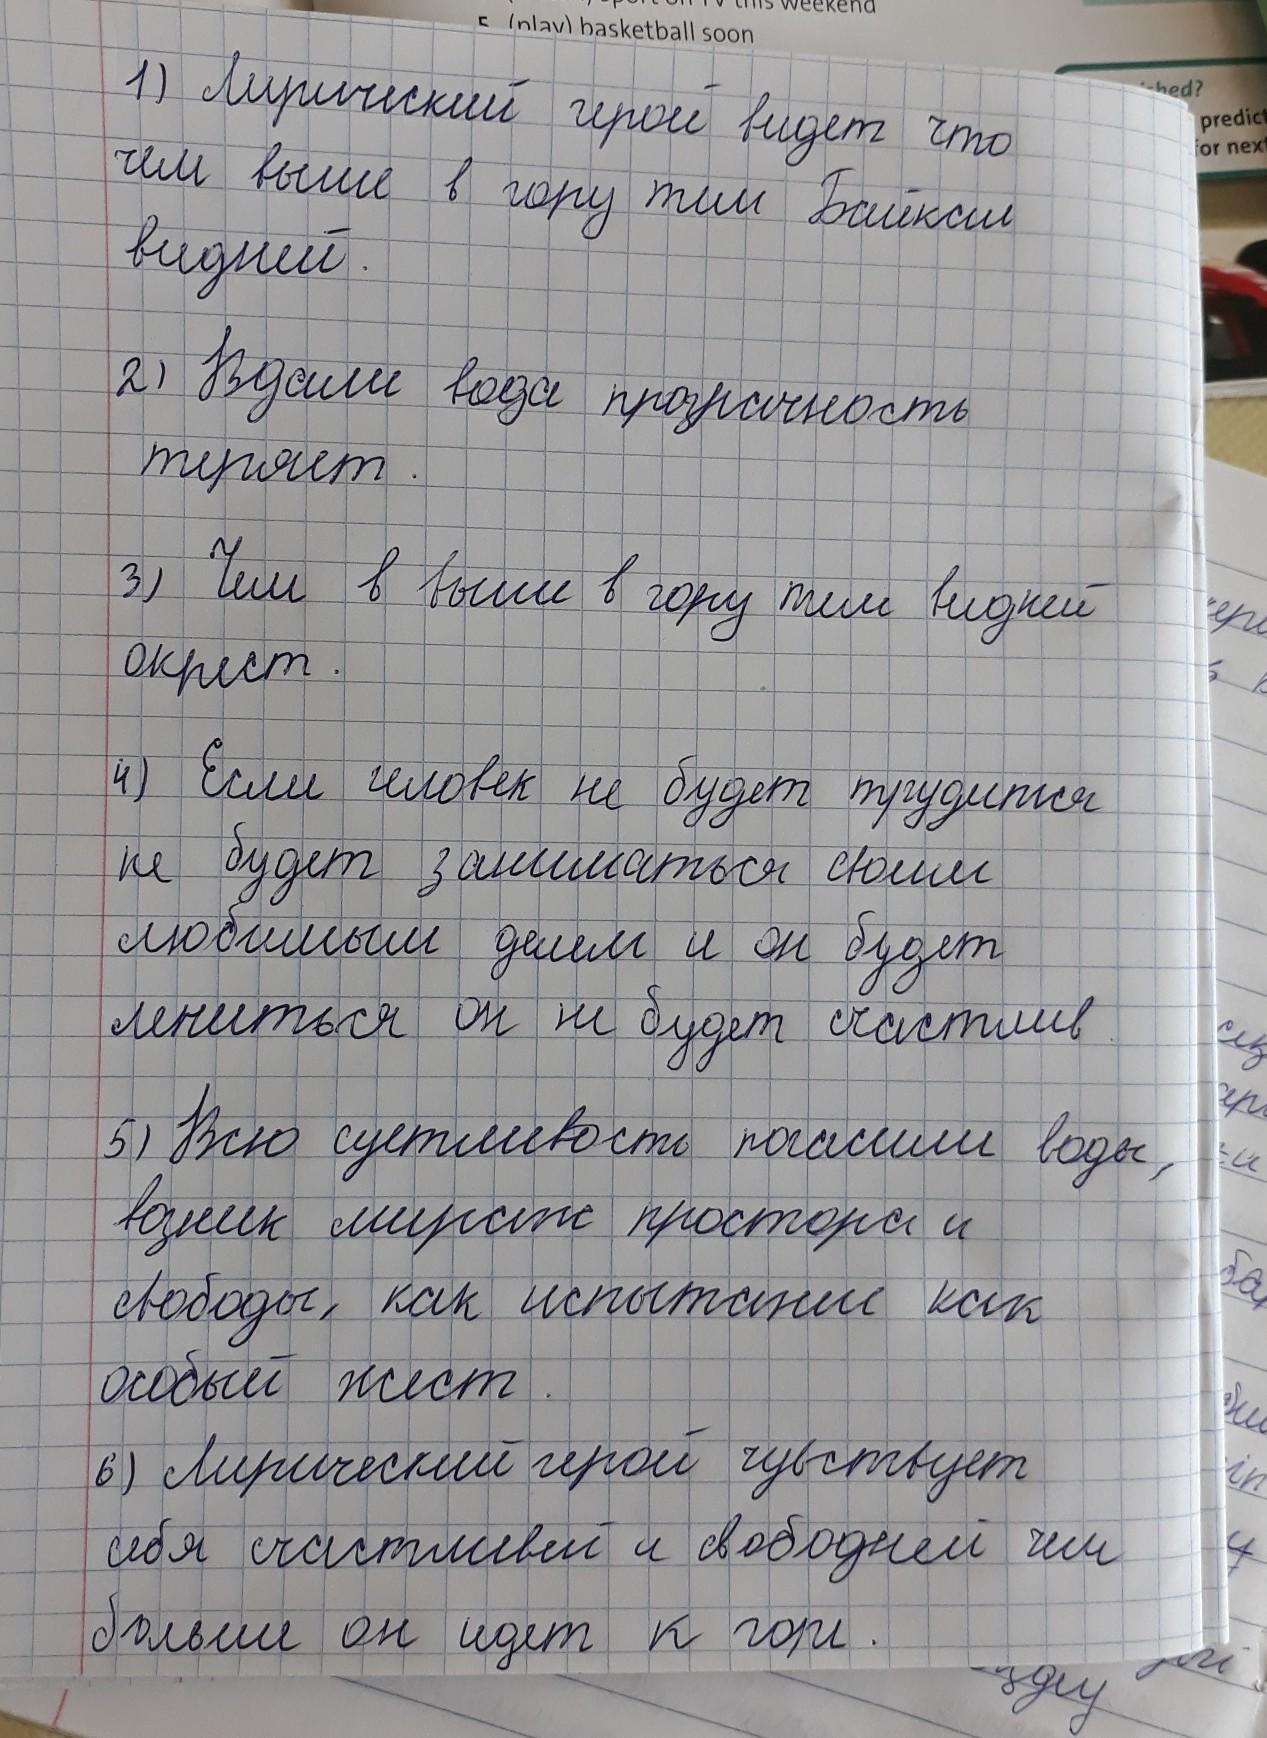 sport on TV this weekend
5 (play) basketball soon
predict
for next
1) Лирический герой видет что
чем выше в гору тем Байкал
видней.
2) Вдали вода прозрачность
теряет.
3) Чем в выше в гору тем видней
окрест.
4) Если человек не будет трудится
не будет заниматься своим
любимым делем и он будет
лениться он не будет счастлив
5) Всю суетливость погасили воды,
возник мираж простора и
свободы, как испытание как
особый жест.
6) Лирический герой чувствует
себя счастливей и свободней чем
больше он идет к горе.